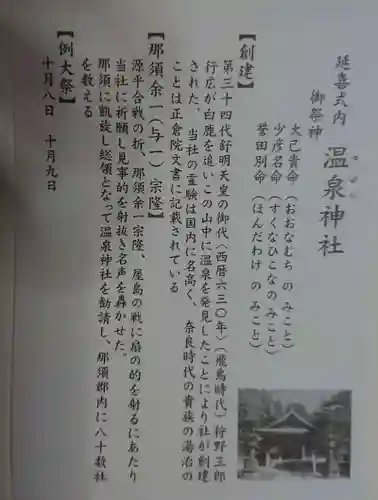 延喜式内　温泉神社
ゆぜん
御祭神
大己貴命（おおなむち のみこと）
少彦名命（すくなひこなのみこと）
誉田別命（ほんだわけ のみこと）
【創建】
第三十四代舒明天皇の御代（西暦六三〇年）（飛鳥時代）狩野三郎
行広が白鹿を追いこの山中に温泉を発見したことにより社が創建
された。　当社の霊験は国内に名高く、奈良時代の貴族の湯治の
ことは正倉院文書に記載されている
【那須余一（与一）宗隆】
源平合戦の折、那須余一宗隆、屋島の戦に扇の的を射るにあたり
当社に祈願し見事的を射抜き名声を轟かせた。
那須に凱旋し総領となって温泉神社を勧請し、那須郡内に八十数社
を数える
【例大祭】
十月八日　十月九日